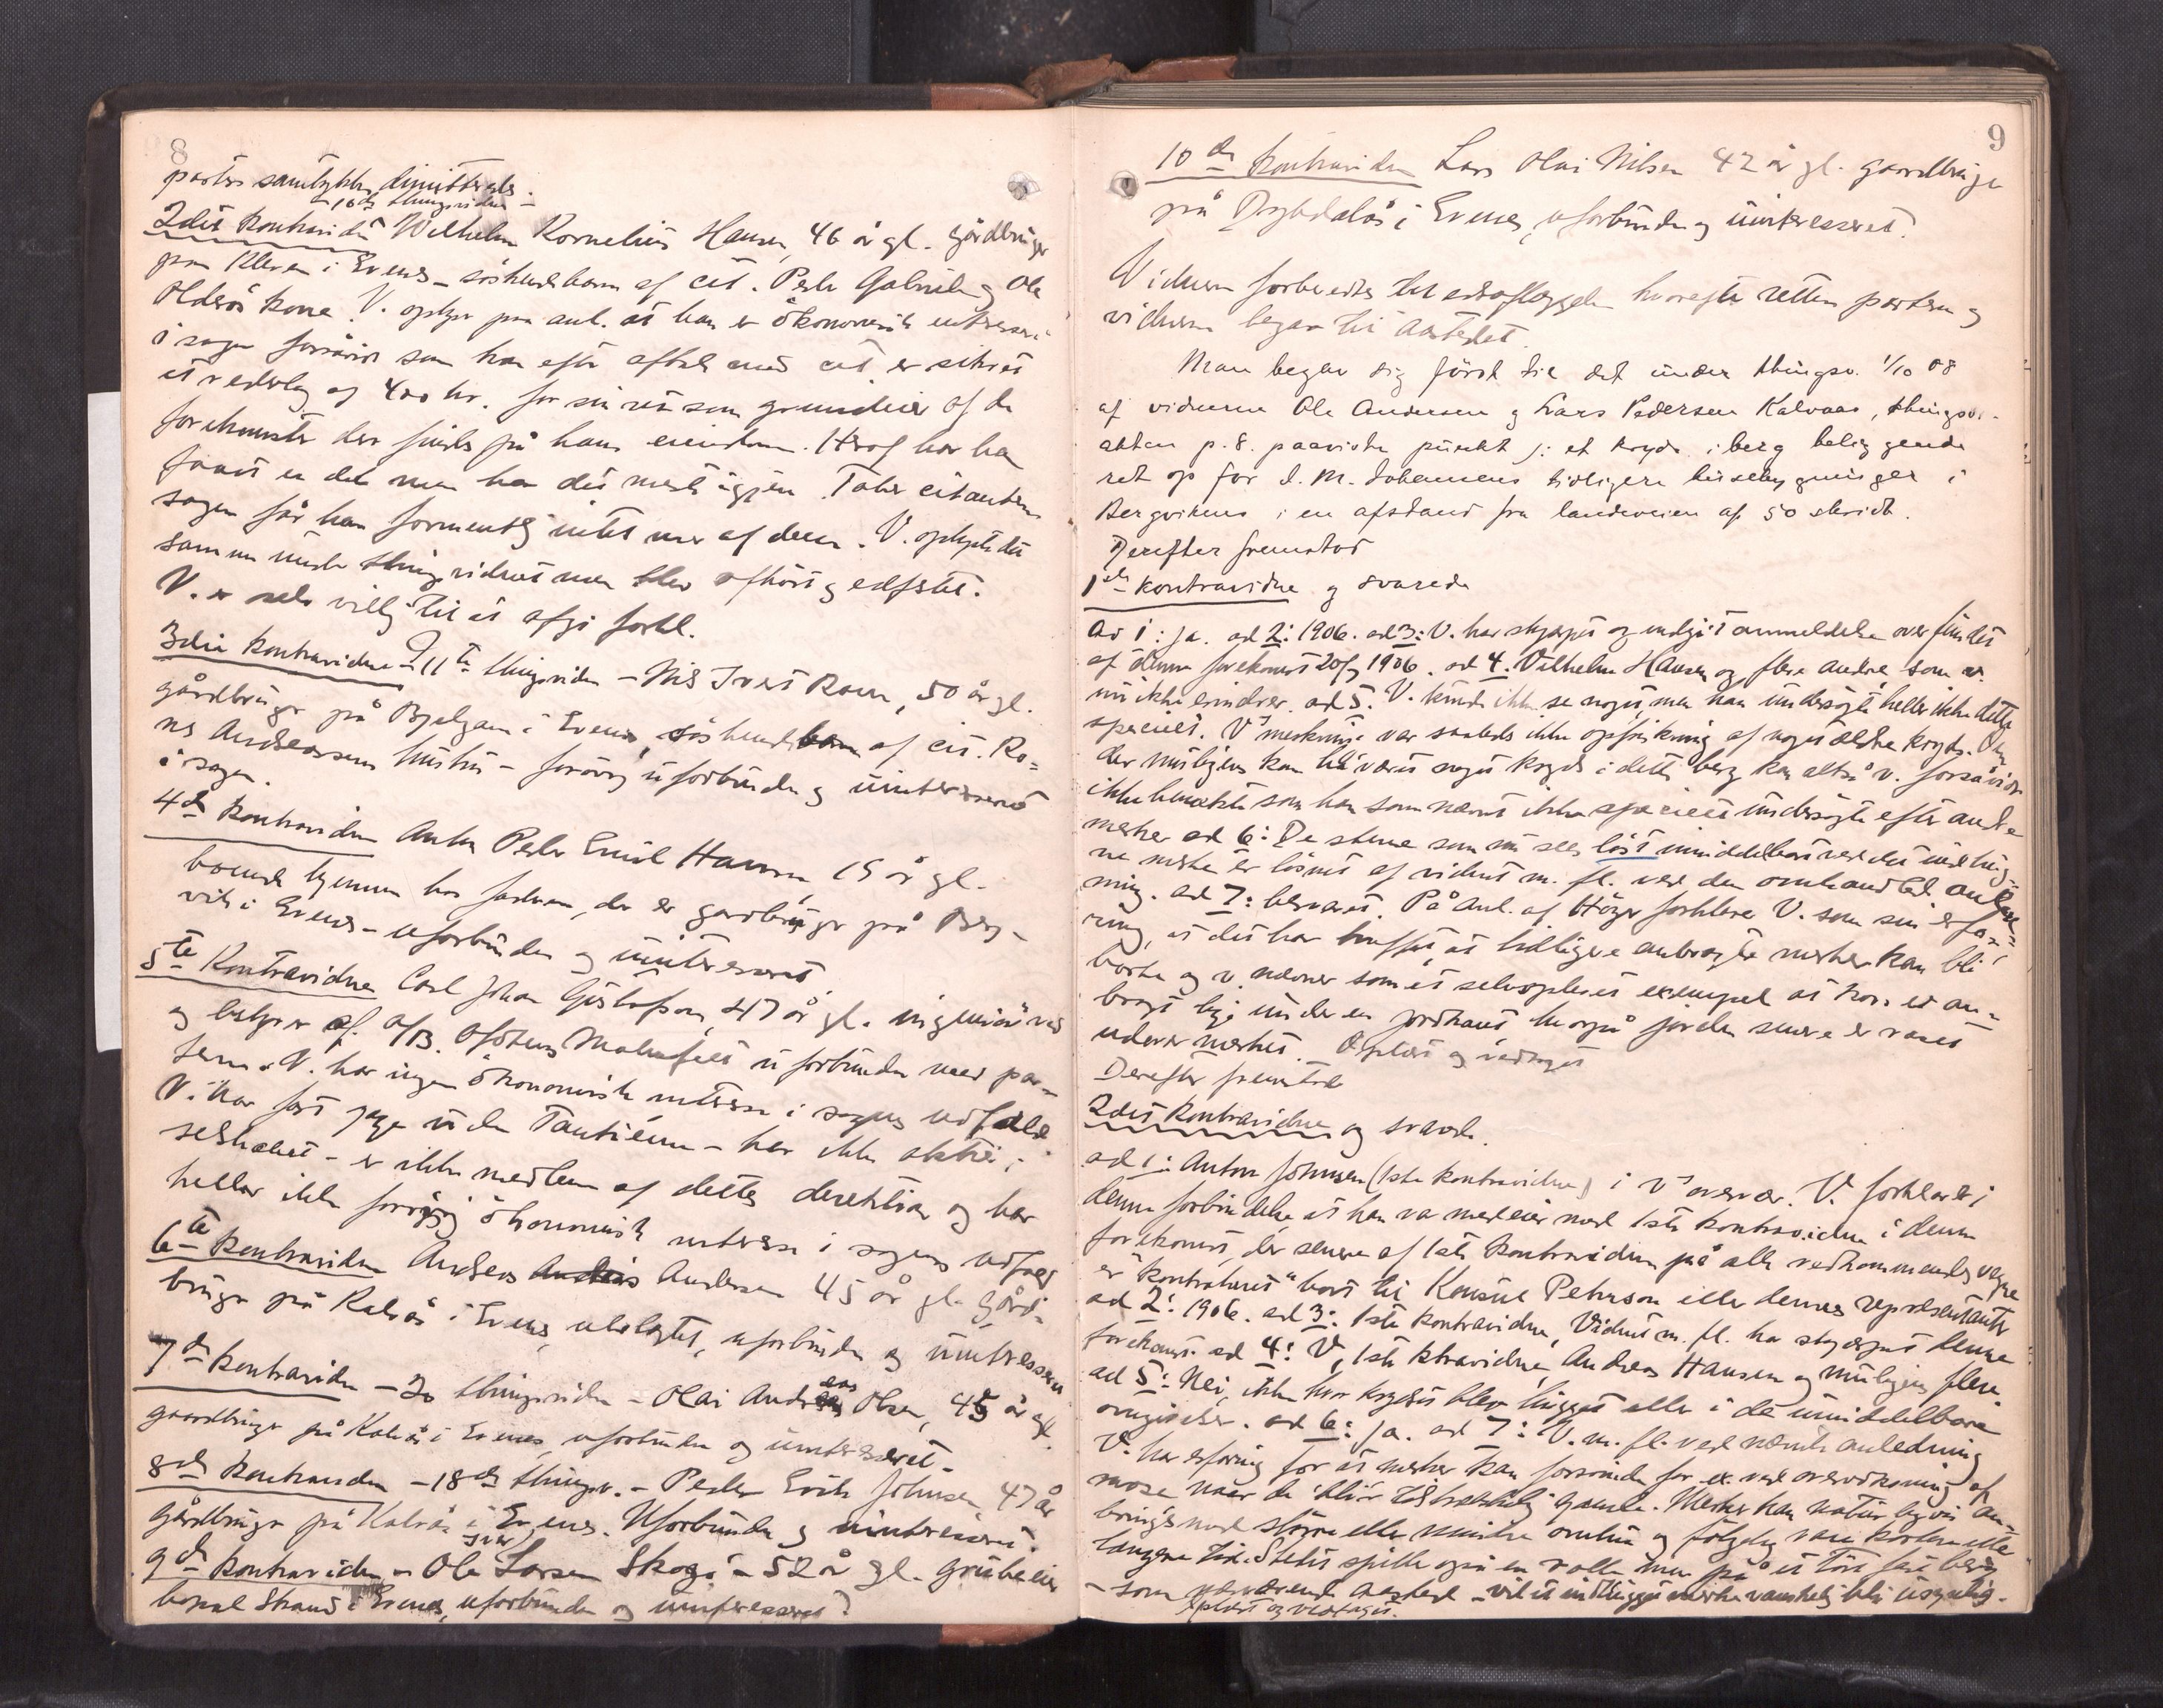 8
partes samtykke dimitteredes.
- 10de thingsvidne -
2det kontravidne Wilhelm Kornelius Hansen, 46 år gl. gårdbruger
paa Kleven i Evenes - söskendebarn af cit. Peder Gabriel og Ole
Olderös kone. V. oplyser paa anl. at han er ökonomisk interesseret
i sagen forsåvidt som han efter aftale med cit. er sikret
et vederlag af 400 kr. for sin ret som grundeier af de
forekomster der findes på hans eiendom. Heraf har han
faaet en del men har det meste igjen. Taber citanterne
sagen får han formentlig intet mer af dem. V. oplyste det
samme under thingsvidnet men blev afhört og edfæstet.
V. er selv villig til at afgi forkl.
3die kontravidne - 11te thingsvidne - Nils Ivert Roen, 50 år gl.
gårdbruger på Bjelgam i Evenes, söskendebarn af cit. Ro=
ns Andreassens hustru - forövrig uforbunden og uinteresseret
i sagen.
4de kontravidne Anton Peder Emil Hansen, 15 år gl.
boende hjemme hos faderen, der er gardbruger på Berg-
vik i Evenes - uforbunden og uinteresseret.
5te Kontravidne Carl Johan Gustafson, 47 år gl. ingeniör ved
og bestyrer af A/B. Ofotens Malmfelt uforbunden med par-
terne. V. har ingen ökonomisk interesse i sagens udfald
V. har fast gage uden Tantieme - har ikke aktier i
selskabet - er ikke medlem af dettes direktion og har
heller ikke forövrig ökonomisk interesse i sagens udfald
6te kontravidne Anders Andersen 45 år gl. gård-
bruger på Kalvås i Evenes, ubeslægtet, uforbunden og uinteresseret
7de kontravidne - 2o thingsvidne - Olai Andreas Olsen, 45 år gl.
gaardbruger på Kalvås i Evenes, uforbunden og uinteresseret.
8de kontravidne - 18de thingsv. - Peder Erik Johnsen 47 år
gårdbruger på Kalvås i Evenes. Uforbunden og uinteresseret.
Ivar
9de kontravidne - Ole Larsen Skogö - 52 år gl. grubeeier
bopæl Strand i Evenes, uforbunden og uinteresseret.
9
10de kontravidne Lars Olai Nilsen 42 år gl. gaardbruger
på Dybdalås i Evenes, uforbunden og uinteresseret.
Vidnerne forberedtes til edsaflæggelse hvorefter retten parterne og
vidnerne begav til aastedet.
Man begav sig först til det under thingsv. 1/10 08
af vidnerne Ole Andersen og Lars Pedersen Kalvaas, thingsv.-
akten p. 8. paaviste punkt ɔ: et kryds i berg beliggende
ret op for I. M. Johannsens tidligere husebygninger i
Bergvikens i en afstand fra landeveien af 50 skridt.
Derefter fremstod
1ste kontravidne og svarede
Ad 1: Ja. ad 2: 1906. ad 3: V. har skjærpet og indgit anmeldelse over fundet
af denne forekomst 20/9 1906. ad 4. Vilhelm Hansen og flere andre, som v.
nu ikke erindrer. ad 5. V. kunde ikke se noget, men han undersögte heller ikke dette
specielt. V's merkning var saaledes ikke opfriskning af noget ældre kryds. Om
der muligens kan ha været noget kryds i dette berg kan altså v. forsåvidt
ikke benegte som han som nævnt ikke specielt undersögte efter andre
merker ad 6: De stene som nu sees löst umiddelbart ved det indhug-
ne merke er lösnet af vidnet m. fl. ved den omhandlede anled=
ning. ad 7: besvaret. På anl. af Höyer forklarer V. som sin erfa-
ring, at det har truffet, at tidligere anbragte merker kan bli
borte og v. nævner som et selvoplevet exempel at kors er an-
bragt lige under en jordkant hvorpå jorden senere er raset
udover merket. Oplæst og vedtaget
Derefter fremstod
2det kontravidne og svarede.
ad 1: Anton Johnsen (1ste kontravidne) i V's nærvær. V. forklarer i
denne forbindelse at han var medeier med 1ste kontravidne i denne
forekomst, der senere af 1ste kontravidne på alle vedkommendes vegne
er "kontraheret" bort til Konsul Pehrson eller dennes repræsentanter
ad 2: 1906. ad 3: 1ste kontravidne, Vidnet m. fl. har skjærpet denne
forekomst. ad 4: V, 1ste ktravidne, Andreas Hansen og muligens flere
ad 5: Nei, ikke hvor krydset blev hugget eller i de umiddelbare
omgivelser. ad 6: ja. ad 7: V. m. fl. ved nævnte anledning
V. har erfaring for at merker kan forsvinde for ex. ved overvoksning af
mose naar de blir tilstrækkelig gamle. Merker kan naturligvis an-
bringes med större eller mindre omhu og fölgelig vare kortere eller
længere tid. Stedet spiller også en rolle men på et tört fast berg
- som nærværende aasted - vil et indhugget merke vanskelig bli usynlig.
Oplæst og vedtaget.